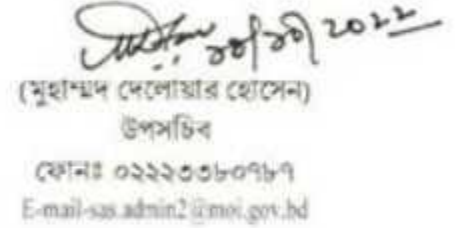 ২০২২
(মুহাম্মদ দেলোয়ার হোসেন)
উপসচিব
ফোনঃ ০২২২৩৩৮০৭৮৭
E-mail-sas.admin2@moi.gov.bd